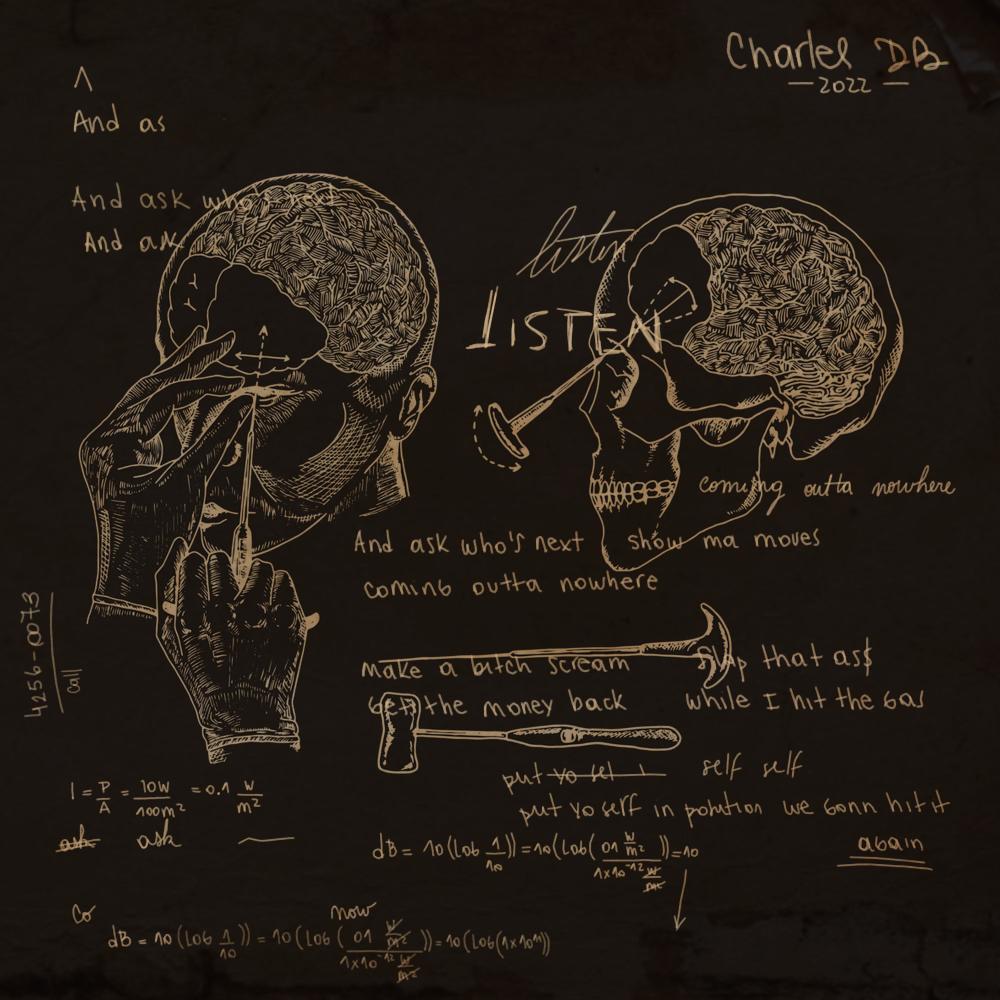 Charlel DB
— 2022 —
Λ
And as
And ask who's next
And ask
listen
LISTEN
coming outta nowhere
And ask who's next show ma moves
coming outta nowhere
4256-0073
call
Make a bitch scream Slap that as$
Get the money back while I hit the Gas
put yo sel self self
put yo self in position we gonn hit it
again
I = P/A = 10W/100m² = 0.1 W/m²
ask ask
dB = 10 (LOG 1/10)) = 10(LOG( 01 W/m² / 1x10⁻¹² W/m² )) = 10
Co now
dB = 10 (LOG 1/10)) = 10 (LOG ( 01 W/m² / 1x10⁻¹² W/m² )) = 10(LOG(1x10¹¹))